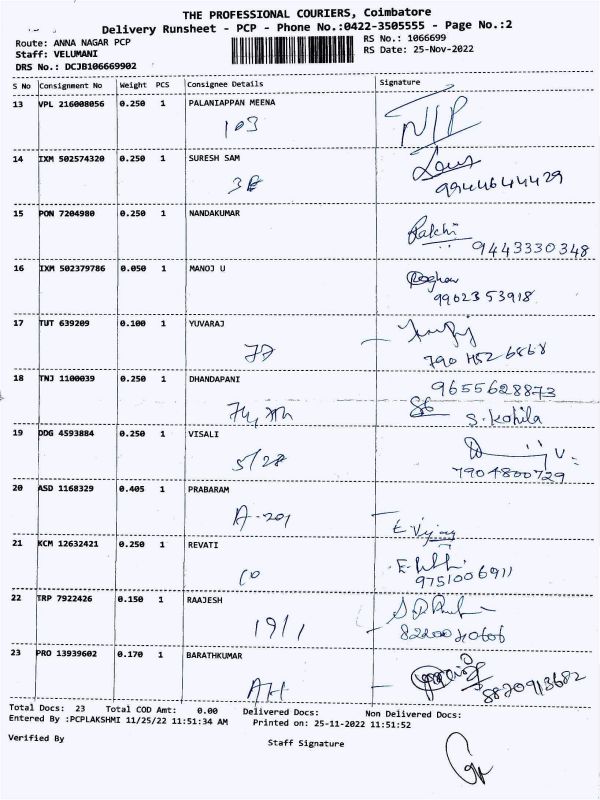 THE PROFESSIONAL COURIERS, Coimbatore
Delivery Runsheet - PCP - Phone No.:0422-3505555 - Page No.:2
Route: ANNA NAGAR PCP
RS No.: 1066699
Staff: VELUMANI
RS Date: 25-Nov-2022
DRS No.: DCJB106669902
S No Consignment No Weight PCS Consignee Details Signature
13 VPL 216008056 0.250 1 PALANIAPPAN MEENA
103
14 IXM 502574320 0.250 1 SURESH SAM
3E
9944644429
15 PON 7204980 0.250 1 NANDAKUMAR
9443330348
16 IXM 502379786 0.050 1 MANOJ U
9902353918
17 TUT 639209 0.100 1 YUVARAJ
77
18 TNJ 1100039 0.250 1 DHANDAPANI
9655628873
S. Kohila
19 DDG 4593884 0.250 1 VISALI
5/28
7904800729
20 ASD 1168329 0.405 1 PRABARAM
A-201
E. Vijay
21 KCM 12632421 0.250 1 REVATI
9751006911
22 TRP 7922426 0.150 1 RAAJESH
19/1
23 PRO 13939602 0.170 1 BARATHKUMAR
8870913682
Total Docs: 23 Total COD Amt: 0.00 Delivered Docs: Non Delivered Docs:
Entered By :PCPLAKSHMI 11/25/22 11:51:34 AM Printed on: 25-11-2022 11:51:52
Verified By
Staff Signature